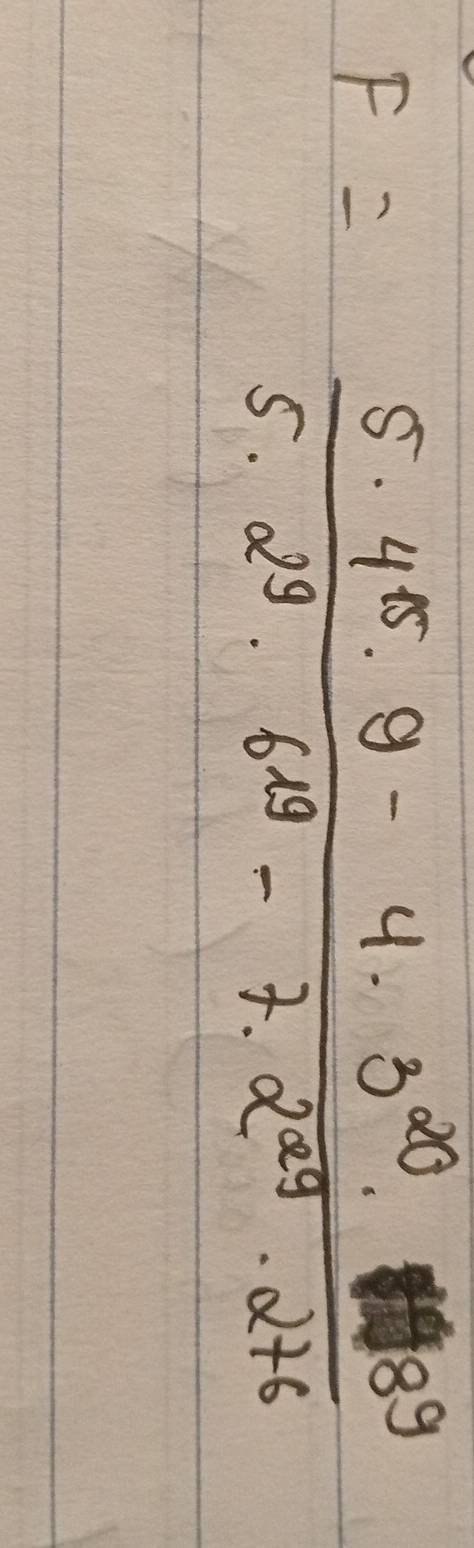 F = 5 . 4¹⁵ . 9 - 4 . 3²⁰ . 8⁹
5 . 2⁹ . 6¹⁹ - 7 . 2²⁹ . 27⁶